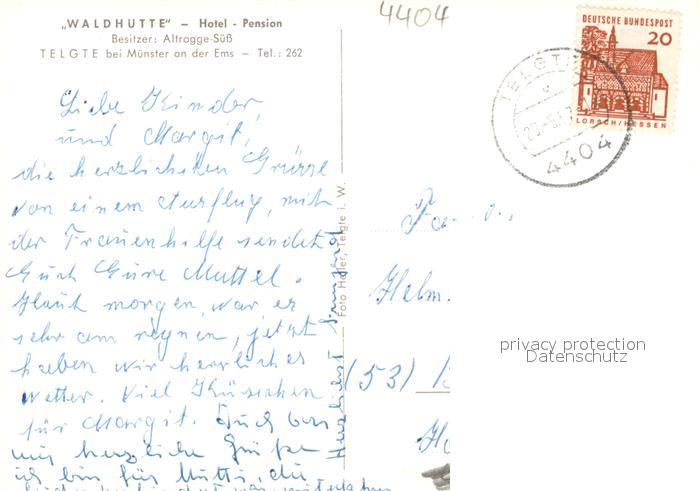 „WALDHÜTTE" – Hotel - Pension
Besitzer: Altrogge-Süß
TELGTE bei Münster an der Ems – Tel.: 262
4404
DEUTSCHE BUNDESPOST
20
LORSCH/HESSEN
TELGTE
4404
Liebe Kinder,
und Margit,
die herzlichsten Grüsse
von einem Ausflug, mit
der Frauenhilfe sendet
Euch Eure Muttel.
Heut morgen, war es
sehr am regnen, jetzt
haben wir herrliches
wetter. Viel Küsschen
für Margit. Auch von
mir herzliche Grüße
ich bin für Mutti, die
Herzlichst
Foto Heller, Telgte i. W.
Fam.
Helm.
(53)
privacy protection
Datenschutz